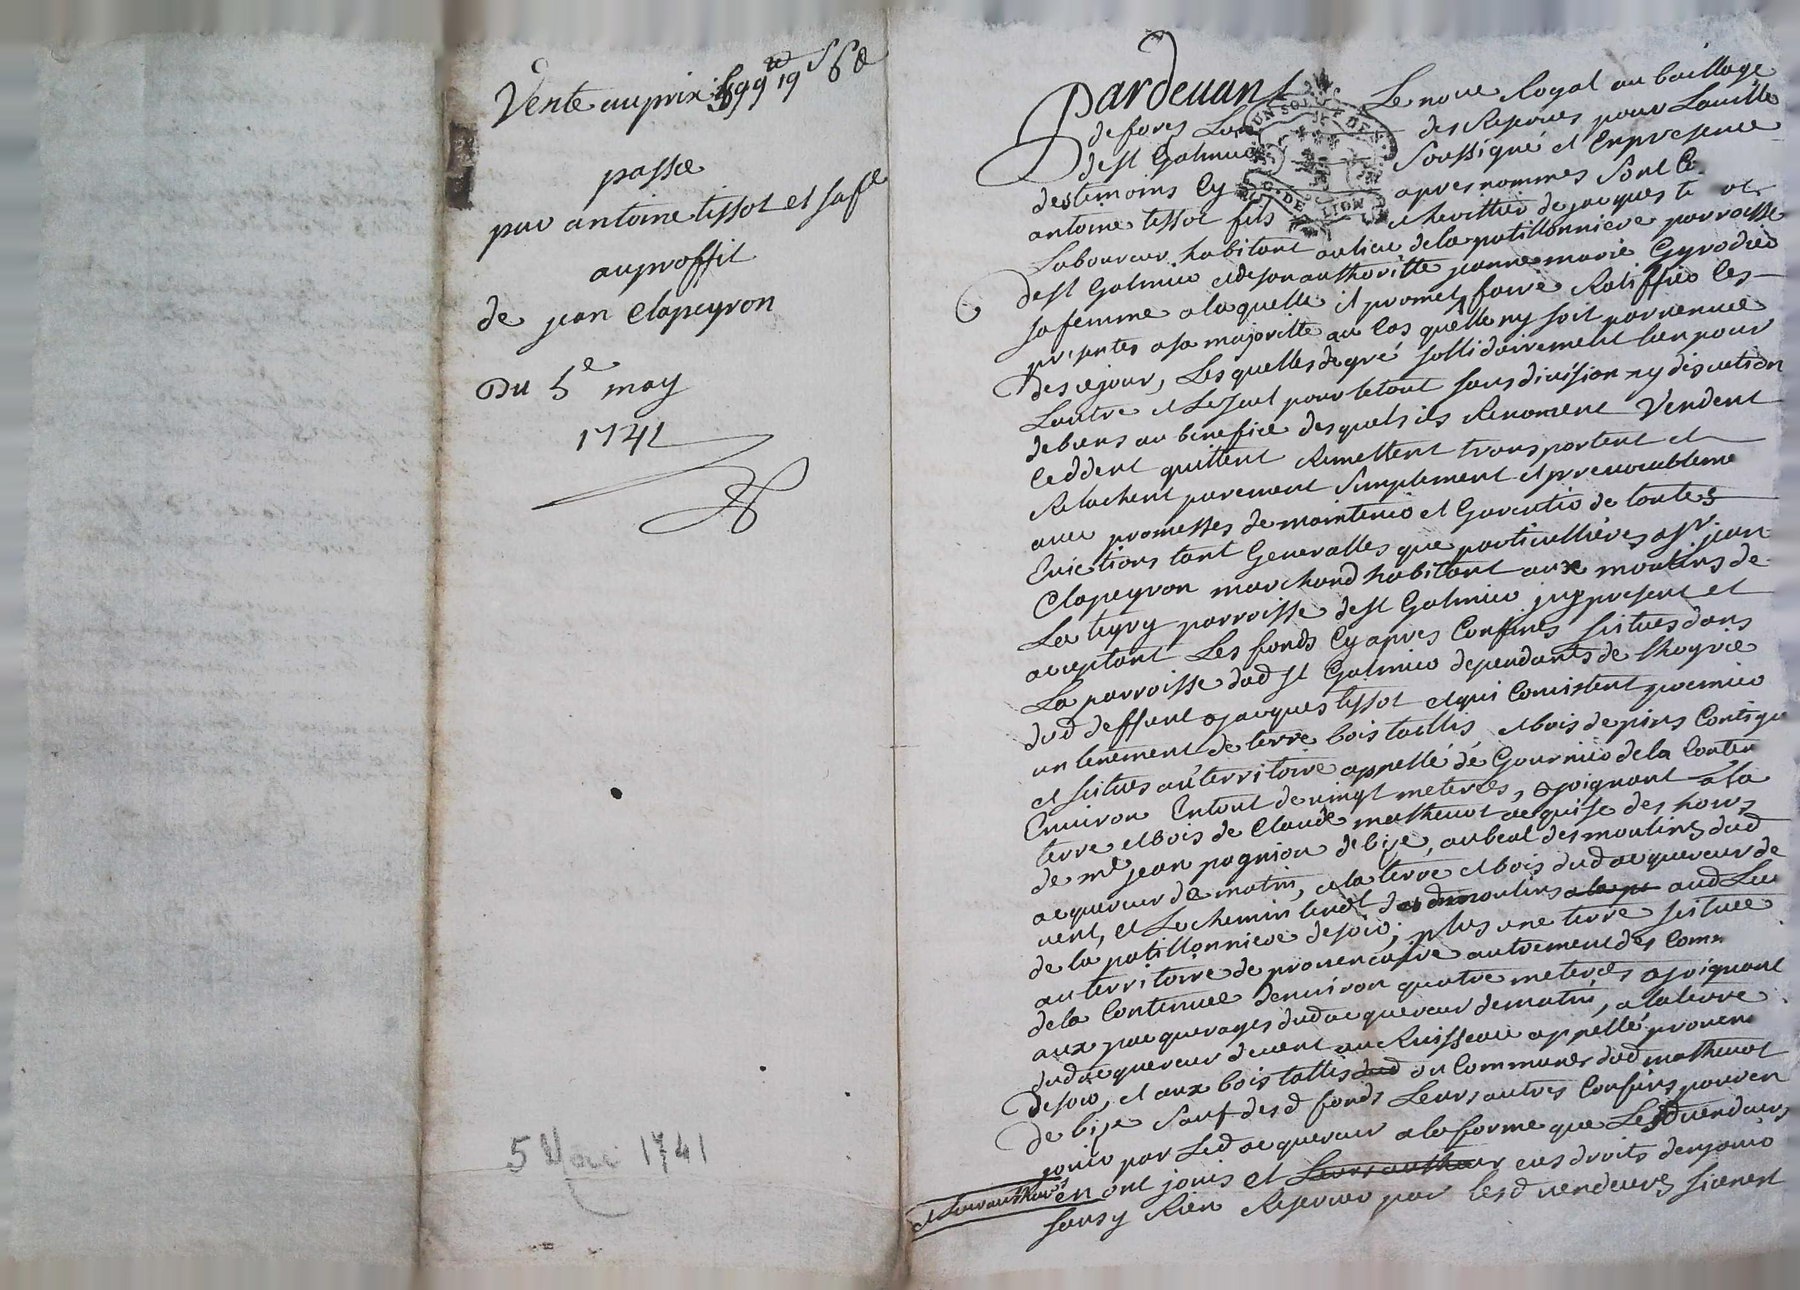 Vente au prix 499 19 s 6 d
passe
par antoine tissot et sa fe
au proffit
de jean Clapeyron
Du 5e may
1741
5 Mai 1741
Pardeuant Le nore Royal au bailliage
de forés des Reserués pour Lauille
de st Galmier soussigné et En presence
des temoins Cy apres nommés sont
antoine tissot fils et herittier de jacques
Laboureur habitant au lieu de la patillonniere parroisse
de st Galmier et de son authoritte jeanne marie Gyrodier
sa femme a laquelle il promet faire Ratiffier les
presentes a sa majoritte au Cas quelle ny soit paruenue
des ce jour, Lesquelles de gré sollidairement lun pour
Lautre et Le seul pour le tout sans diuision ny discution
de biens au benefice desquels ils Renoncent Vendent
Ceddent quittent Remettent transportent et
Relachent purement simplement et jrreuocableme
auec promesses de maintenir et Garentir de toutes
Euictions tant Generalles que particullieres a sr jean
Clapeyron marchand habitant aux moulins de
La teyry parroisse de st Galmier jcy present et
acceptant Les fonds Cy apres Confinés scitués dans
La parroisse dud st Galmier dependants de lhoyrie
dud deffunt jacques tissot et qui Consistent premier
un tenement de terre bois taillis et bois de pins Contigu
et scitués au territoire appellé de Gournier de la Conten
Enuiron En tout de vingt meterées, ajoignant a la
terre et bois de Claude matheuot acquise des hoirs
de me jean pagnion de bise, au beal des moulins dud
acquereur de matin, a la terre et bois dud acquereur de
uent, et Le chemin tend des moulins aud Lieu
de la patillonniere de soir; plus une terre scituée
au territoire de prouencayre autrement des Comm
de la Contenue denuiron quatre meterées ajoignant
aux pacquerages dud acquereur de matin, a la terre
dud acquereur de uent au Ruisseau appellé prouen
de soir, et aux bois tallis dud ou Communes dud matheuot
de bise sauf desd fonds Leurs autres Confins pour en
jouir par Led acquereur a la forme que Lesd vendeurs
et leurs autheurs en ont jouis et Leurs autheurs eus droits den jouir
sans y Rien Reseruer par lesd vendeurs sienent